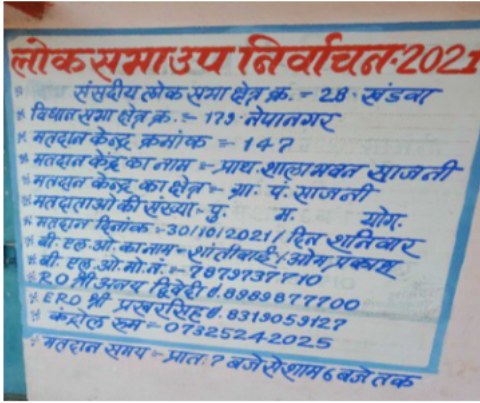 लोकसभा उप निर्वाचन-2021
* संसदीय लोक सभा क्षेत्र क्र. = 28 खंडवा
* विधानसभा क्षेत्र क्र. :- 179 नेपानगर
* मतदान केन्द्र क्रमांक = 147
* मतदान केंद्र का नाम :- प्राथ. शाला भवन साजनी
* मतदान केन्द्र का क्षेत्र :- ग्रा. पं. साजनी
* मतदाताओ की संख्या - पु. म. योग.
* मतदान दिनांक :- 30/10/2021/ दिन शनिवार
* बी. एल. ओ. का नाम :- शांतीबाई / ओम प्रकाश
* बी. एल. ओ. मो. नं. :- 7879737710
* RO श्री अजय द्विवेदी d. 8989877700
* ERO श्री प्रखरसिंह d. 8319059127
* कंट्रोल रूम = 07325242025
* मतदान समय :- प्रात: 7 बजे से शाम 6 बजे तक